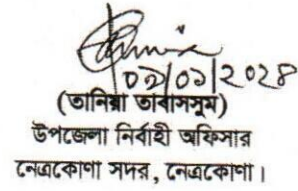 ০৯/০১/২০২৪
(তানিয়া তাবাসসুম)
উপজেলা নির্বাহী অফিসার
নেত্রকোণা সদর, নেত্রকোণা।